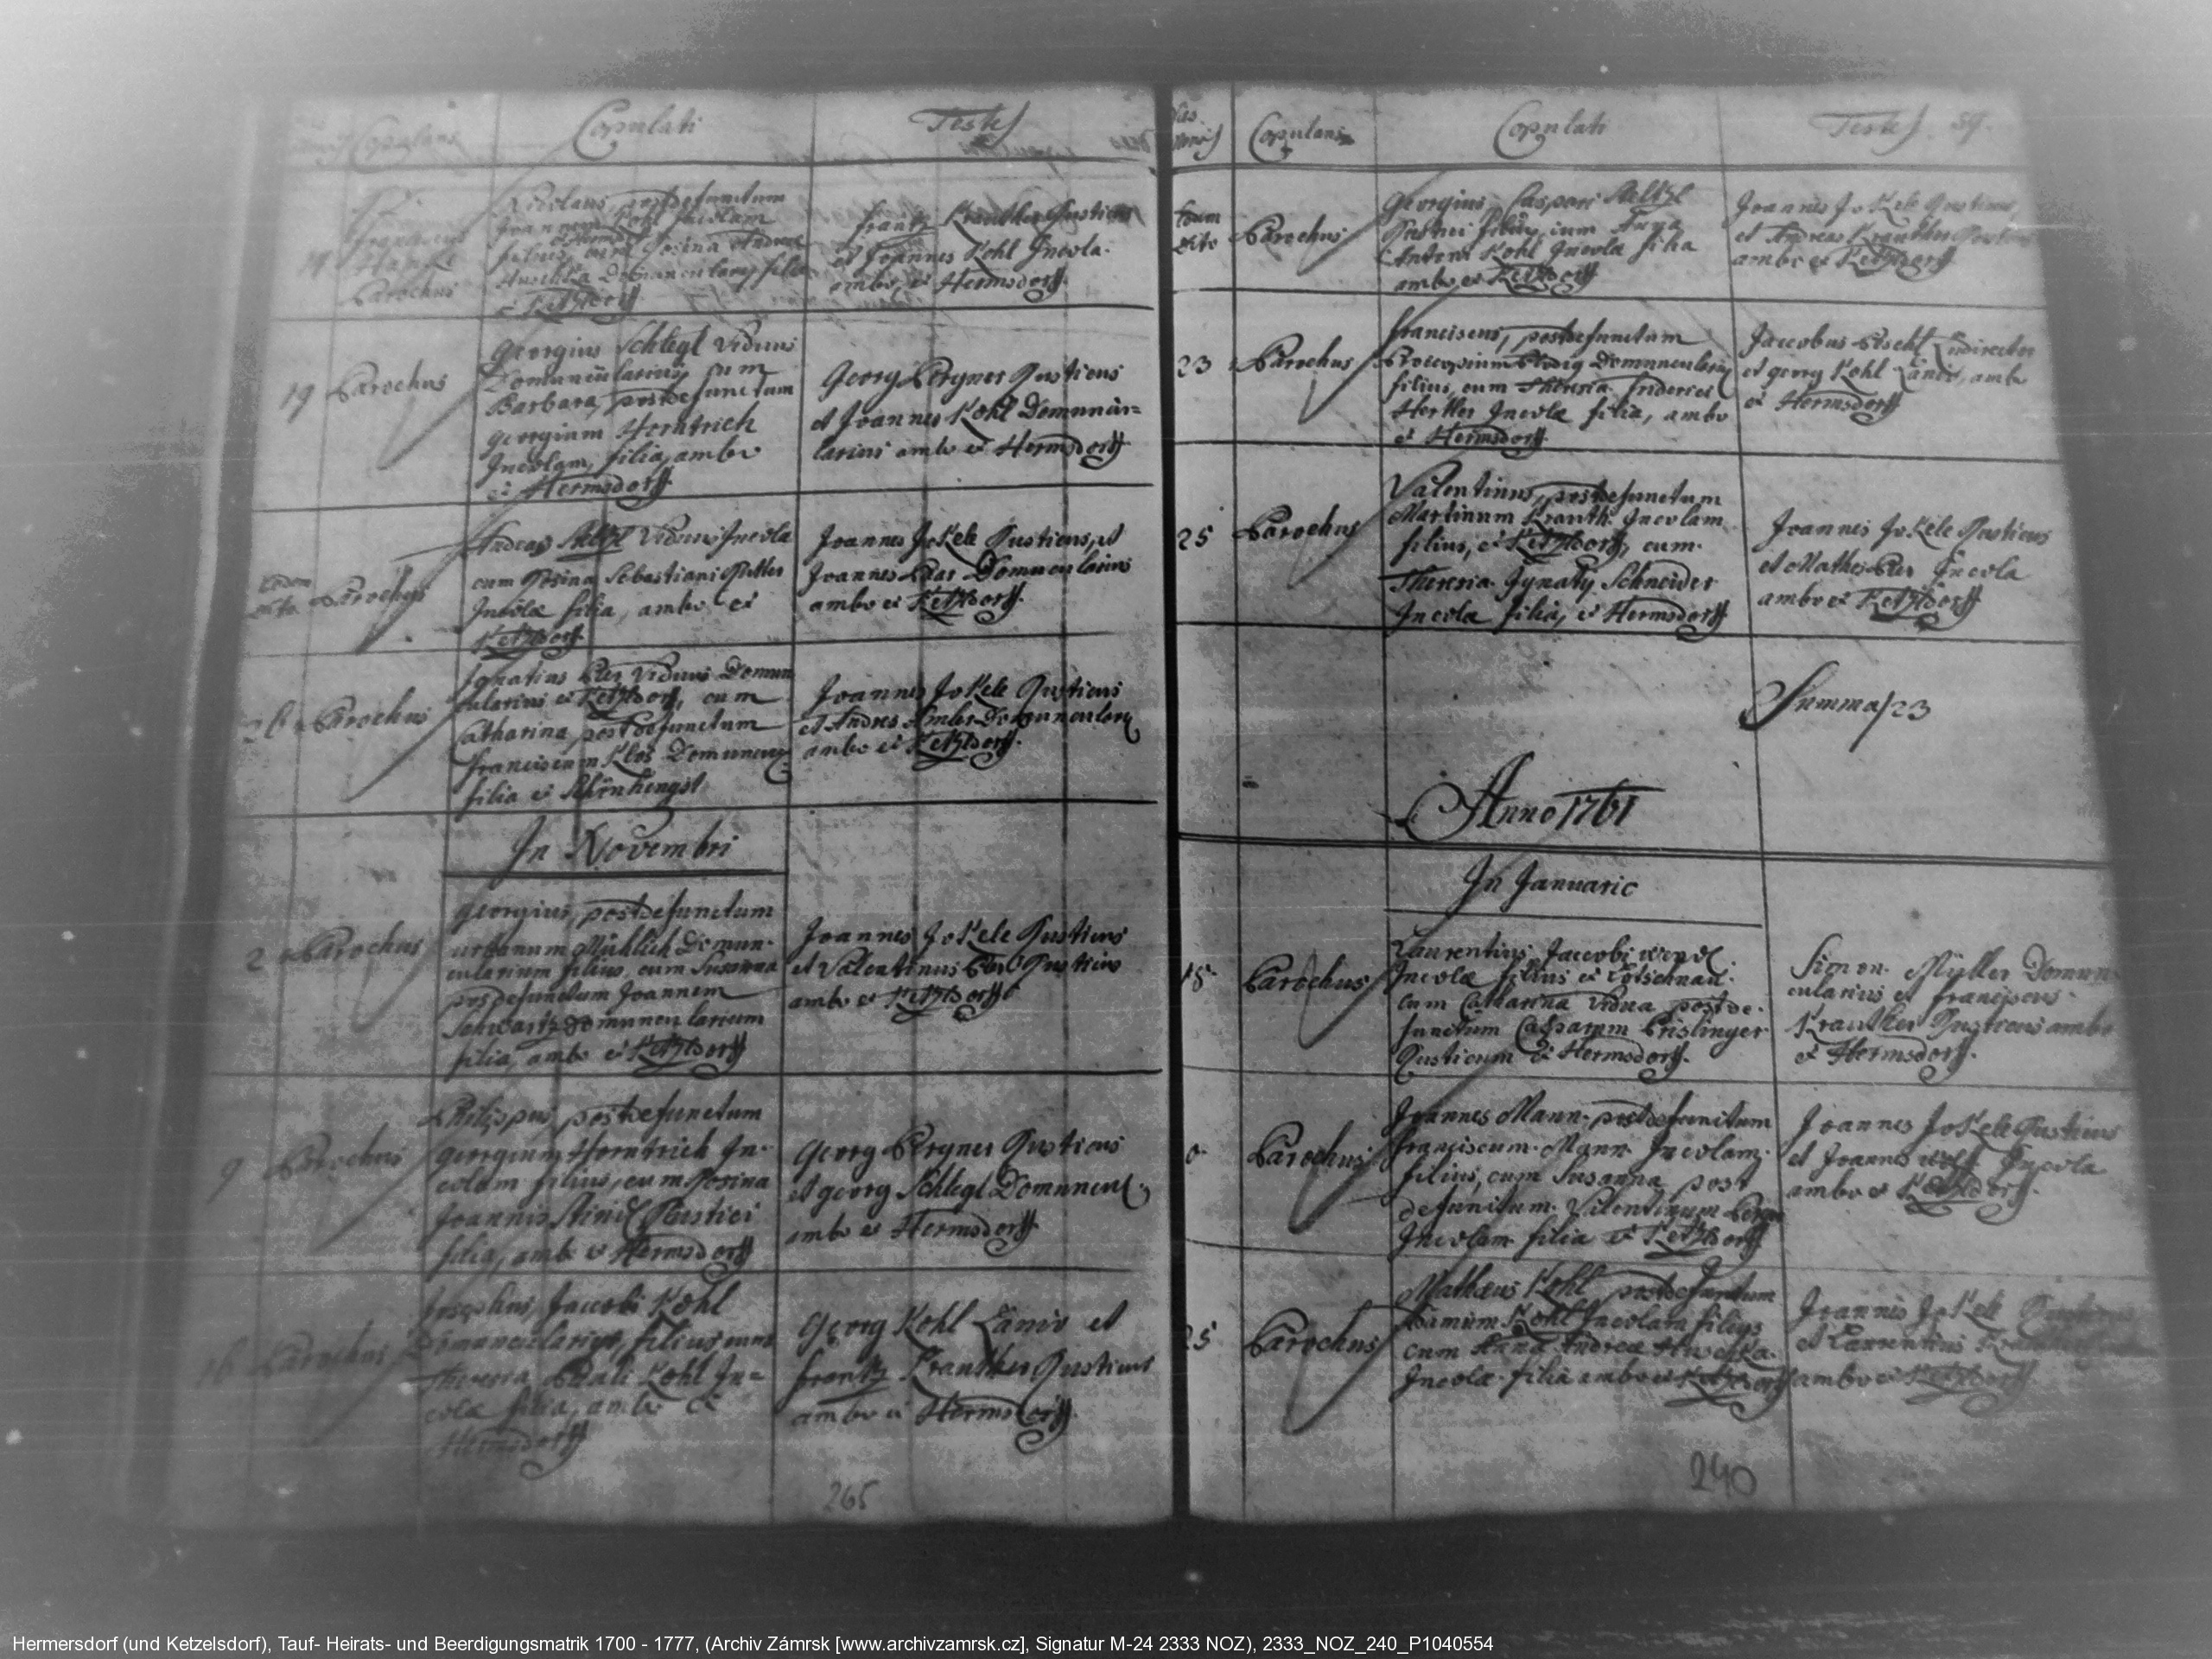 Copulans
Copulati
Testes
14
Franciscus
Hanke
Parochus
post defunctum
Joannem Kohl Incolam
filius, cum Rosina Andreae
Huschka Domuncularij filia
ex Ketzldorff
Frantz Krauthler Rusticus
et Joannes Kohl Incola
ambo, ex Hermsdorff.
19
Parochus
Georgius Schlegl Viduus
Domuncularius, cum
Barbara, post defunctum
Georgium Horntrich
Incolam, filia, ambo
ex Hermsdorff
Georg Pergner Rusticus
et Joannes Kohl Domuncu=
larius ambo ex Hermsdorff
Eodem
dito
Parochus
Andreas Viduus Incola
cum Rosina Sebastiani
Incolae filia, ambo ex
Ketzldorff
Joannes Jokele Rusticus, et
Joannes Domuncularius
ambo ex Ketzldorff.
26
Parochus
Ignatius Viduus Domun
cularius ex Ketzldorff, cum
Catharina, post defunctum
Franciscum Domuncul.
filia ex Schönhengst
Joannes Jokele Rusticus
et Andres Domuncularius
ambo ex Ketzldorff.
In Novembri
2
Parochus
Georgius, post defunctum
Urbanum Mühlich Domun-
cularium filius, cum Susanna
post defunctum Joannem
Schwartz Domuncularium
filia, ambo ex Ketzldorff
Joannes Jokele Rusticus
et Valentinus Rusticus
ambo ex Ketzldorff
9
Parochus
Philippus, post defunctum
Georgium Horntrich In-
colam filius, cum Rosina
Joannis Rustici
filia, ambo ex Hermsdorff
Georg Pergner Rusticus
et Georg Schlegl Domuncul.
ambo ex Hermsdorff
16
Parochus
Josephus, Jacobi Kohl
Domuncularij, filius cum
Theresia Kohl In=
colae filia, ambo ex
Hermsdorff
Georg Kohl Lanio et
Frantz Krauthler Rusticus
ambo ex Hermsdorff.
265
Copulans
Copulati
Testes
59.
Eodem
dito
Parochus
Georgius, Caspari
Rustici filius, cum Anna
Antoni Kohl Incolae filia
ambo ex Ketzldorff
Joannes Jokele Rusticus,
et Andreas Krauthler
ambo ex Ketzldorff
23
Parochus
Franciscus, post defunctum
Procopium Domuncularium
filius, cum Theresia Friderici
Hertler Incolae filia, ambo
ex Hermsdorff
Jacobus
et Georg Kohl Lanio, ambo
ex Hermsdorff
25
Parochus
Valentinus, post defunctum
Martinum Krauth. Incolam
filius, ex Ketzldorff, cum
Theresia Ignatij Schneider
Incolae filia, ex Hermsdorff
Joannes Jokele Rusticus
et Mathes Incola
ambo ex Ketzldorff
Summa/23
Anno 1761
In Januario
18
Parochus
Laurentius, Jacobi
Incolae filius ex
cum Catharina Vidua post de-
functum Casparum Prislinger
Rusticum ex Hermsdorff.
Simon Müller Domun-
cularius et Franciscus
Krauthler Rusticus ambo
ex Hermsdorff.
Parochus
Joannes Mann, post defunctum
Franciscum Mann Incolam
filius, cum Susanna post
defunctum Valentinum
Incolam filia ex Ketzldorff
Joannes Jokele Rusticus
et Joannes Wolf Incola
ambo ex Ketzldorff.
25
Parochus
Mathaeus Kohl, post defunctum
Kohl Incolam filius
cum Anna Andreae Huschka
Incolae filia ambo ex Ketzldorff
Joannes Jokele Rusticus
et Laurentius
ambo ex Ketzldorff
240
Hermersdorf (und Ketzelsdorf), Tauf- Heirats- und Beerdigungsmatrik 1700 - 1777, (Archiv Zámrsk [www.archivzamrsk.cz], Signatur M-24 2333 NOZ), 2333_NOZ_240_P1040554